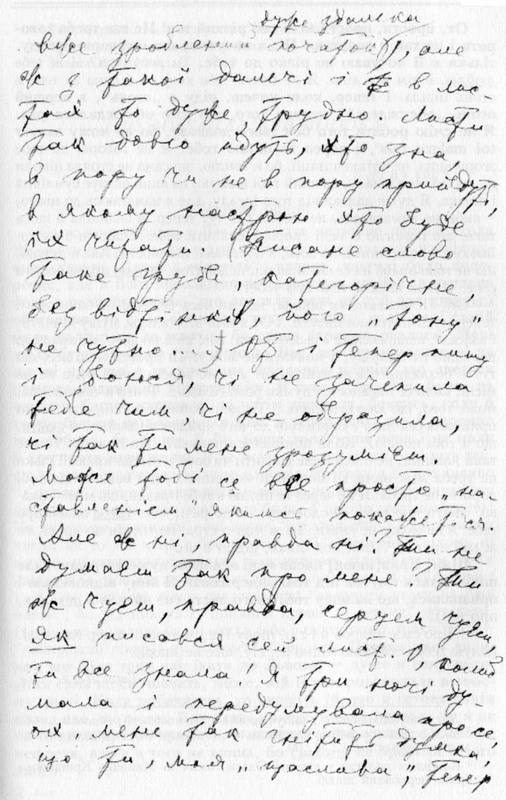 дуже здалека
вже зроблений початок), але
ж з такої далечі і в лис-
тах то дуже трудно. Листи
так довго йдуть, хто зна,
в пору чи не в пору прийдуть,
в якому настрою хто буде
їх читати. (Писане слово
таке грубе, категорічне,
без відтінків, його „тону"
не чутно...) От і тепер пишу
і боюся, чі не зачепила
тебе чим чі не образила,
чі так ти мене зрозумієш.
Може тобі се все просто „на-
ставленієм" якимсь покажеться.
Але ж ні, правда ні? Ти не
думаєш так про мене? Ти
ж чуєш, правда, серцем чуєш,
як писався цей лист? О, коли б
ти все знала. Я три ночі ду-
мала і передумувала про се,
ой, мене так гнітить думка,
що ти, моя „щаслива", тепер